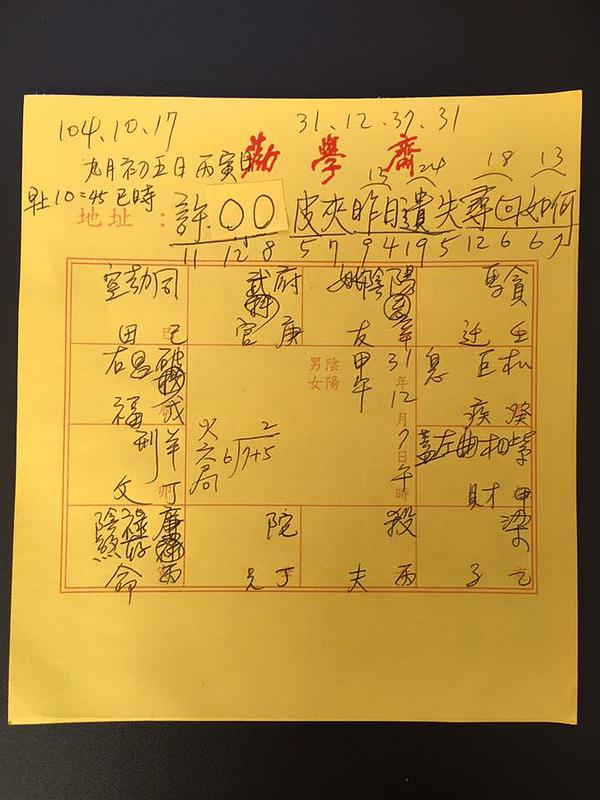 104.10.17
31.12.37.31
九月初五日丙寅日
勸學齋
早上10:45巳時
13 24 18 13
地址:許〇〇皮夾昨日遺失尋回如何
11 12 8 5 7 9 4 19 5 12 6 6 7
空劫同
巳
田
府
庚
官
陰陽
辛
友
貪
壬
遷
右昌破
福
甲午
陰陽
男女
31年
12月
7日
午時
息
巨
疾
癸
刑羊
文
丁
火六局
2
6
7+5
蓋左曲相紫
財
甲
陰煞
祿
廉
命
兄
丁
殺
夫
丙
梁
子